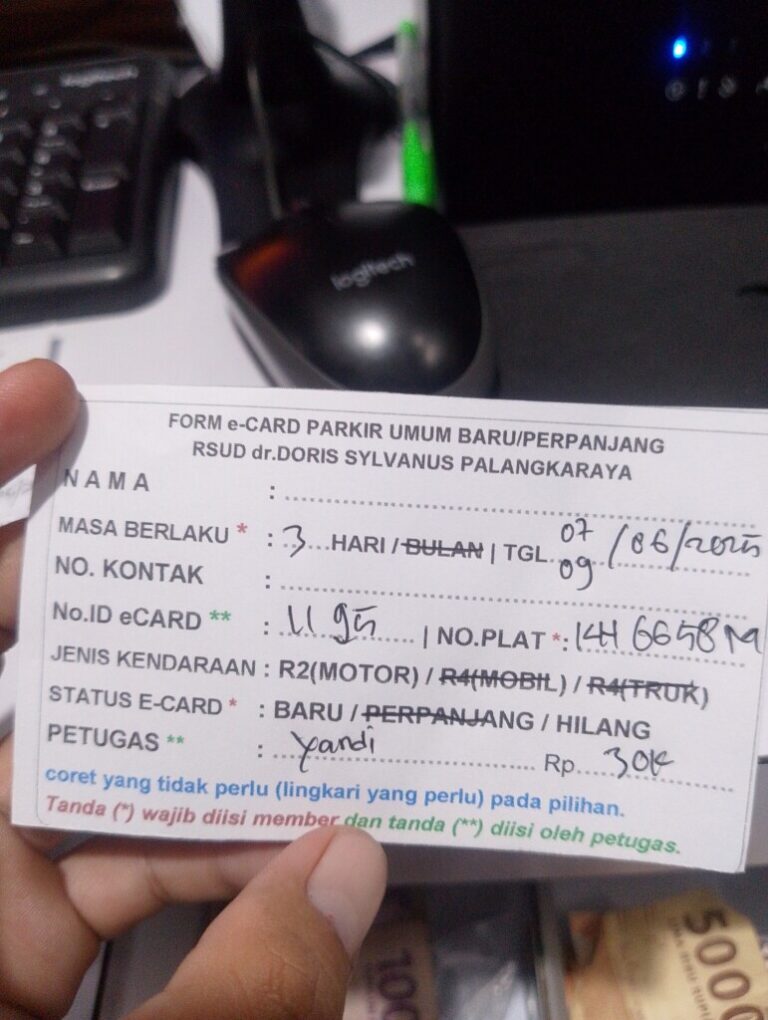 logitech
logitech
FORM e-CARD PARKIR UMUM BARU/PERPANJANG
RSUD dr.DORIS SYLVANUS PALANGKARAYA
N A M A :
MASA BERLAKU * : 3 HARI / BULAN | TGL 07 / 06 / 2025
09
NO. KONTAK :
No.ID eCARD ** : 1195 | NO.PLAT *: KH 6658 M
JENIS KENDARAAN : R2(MOTOR) / R4(MOBIL) / R4(TRUK)
STATUS E-CARD * : BARU / PERPANJANG / HILANG
PETUGAS ** : Yandi Rp. 30K
coret yang tidak perlu (lingkari yang perlu) pada pilihan.
Tanda (*) wajib diisi member dan tanda (**) diisi oleh petugas.
100
5000